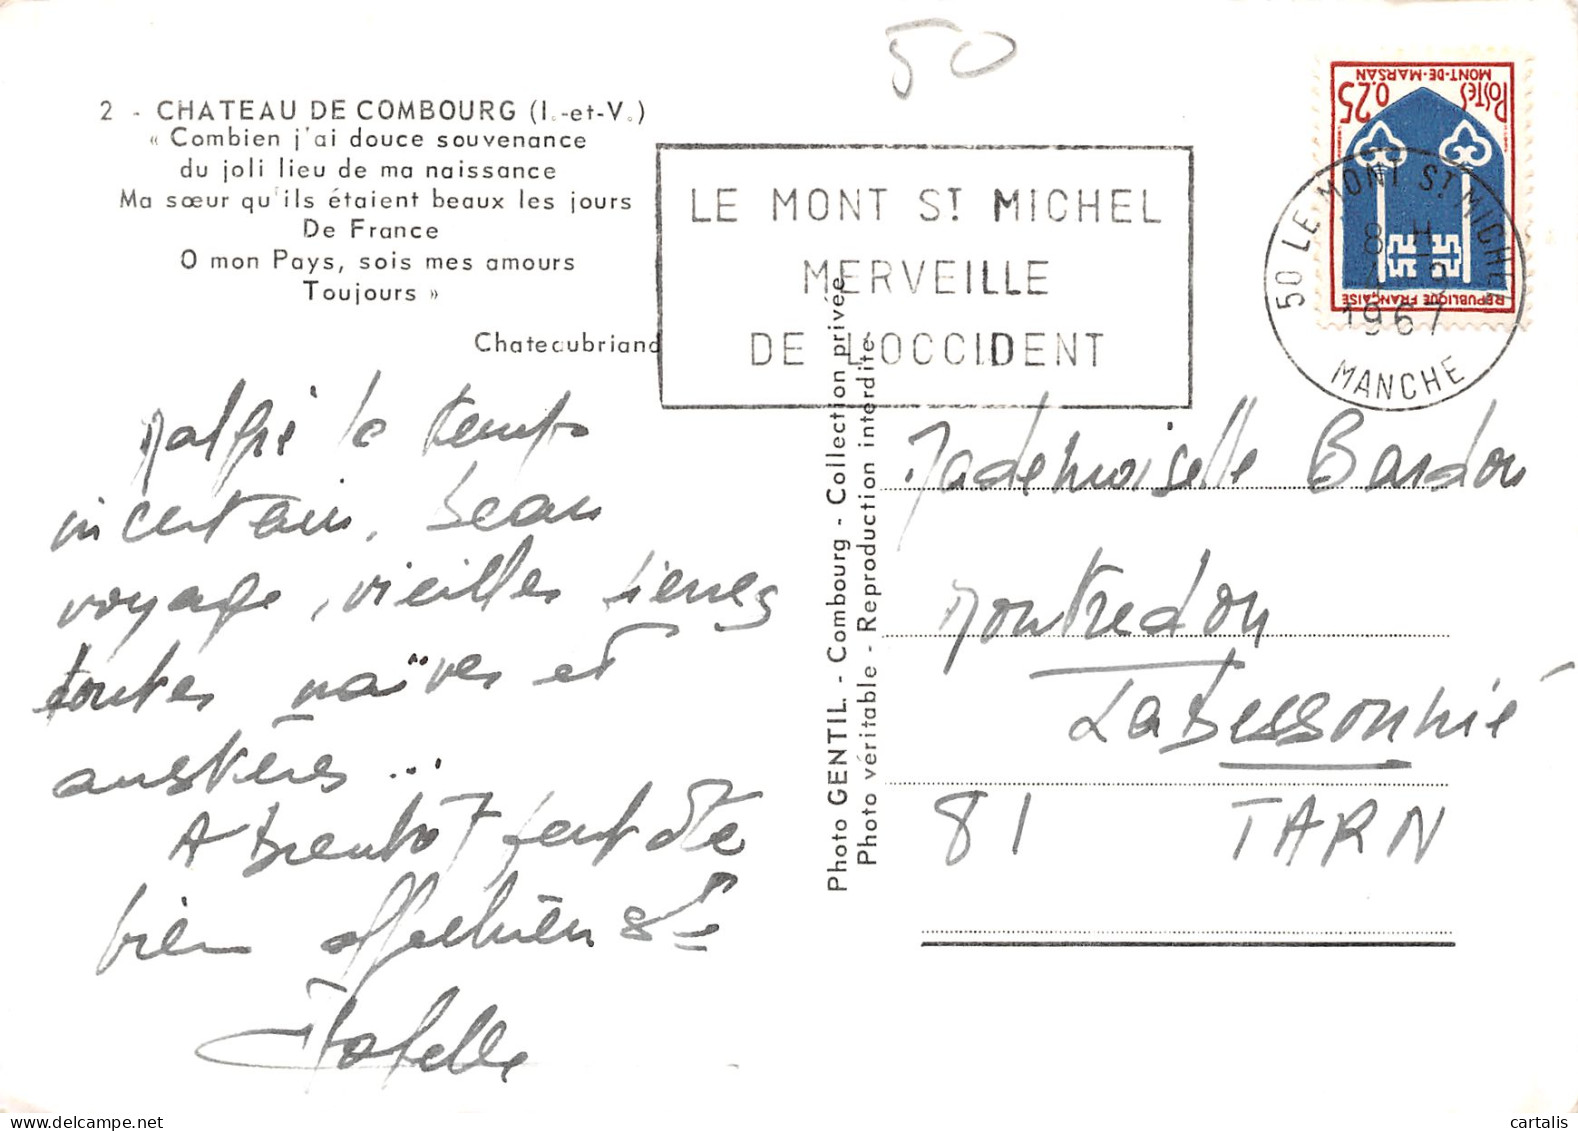 50
2 - CHATEAU DE COMBOURG (I.-et-V.)
« Combien j'ai douce souvenance
du joli lieu de ma naissance
Ma sœur qu'ils étaient beaux les jours
De France
O mon Pays, sois mes amours
Toujours »
Chateaubriand
LE MONT ST MICHEL
MERVEILLE
DE L'OCCIDENT
POSTES 0.25
MONT-DE-MARSAN
REPUBLIQUE FRANÇAISE
50 LE MONT ST MICHEL
18 H
4 - 3
1967
MANCHE
Malgré le temps
incertain, beau
voyage, vieilles pierres
toutes naïves et
austères...
A Bientôt peut être
bien
Photo GENTIL - Combourg - Collection privée
Photo véritable - Reproduction interdite
Mademoiselle Bardou
Montredon
LaBessonnié
81 TARN
cartalis